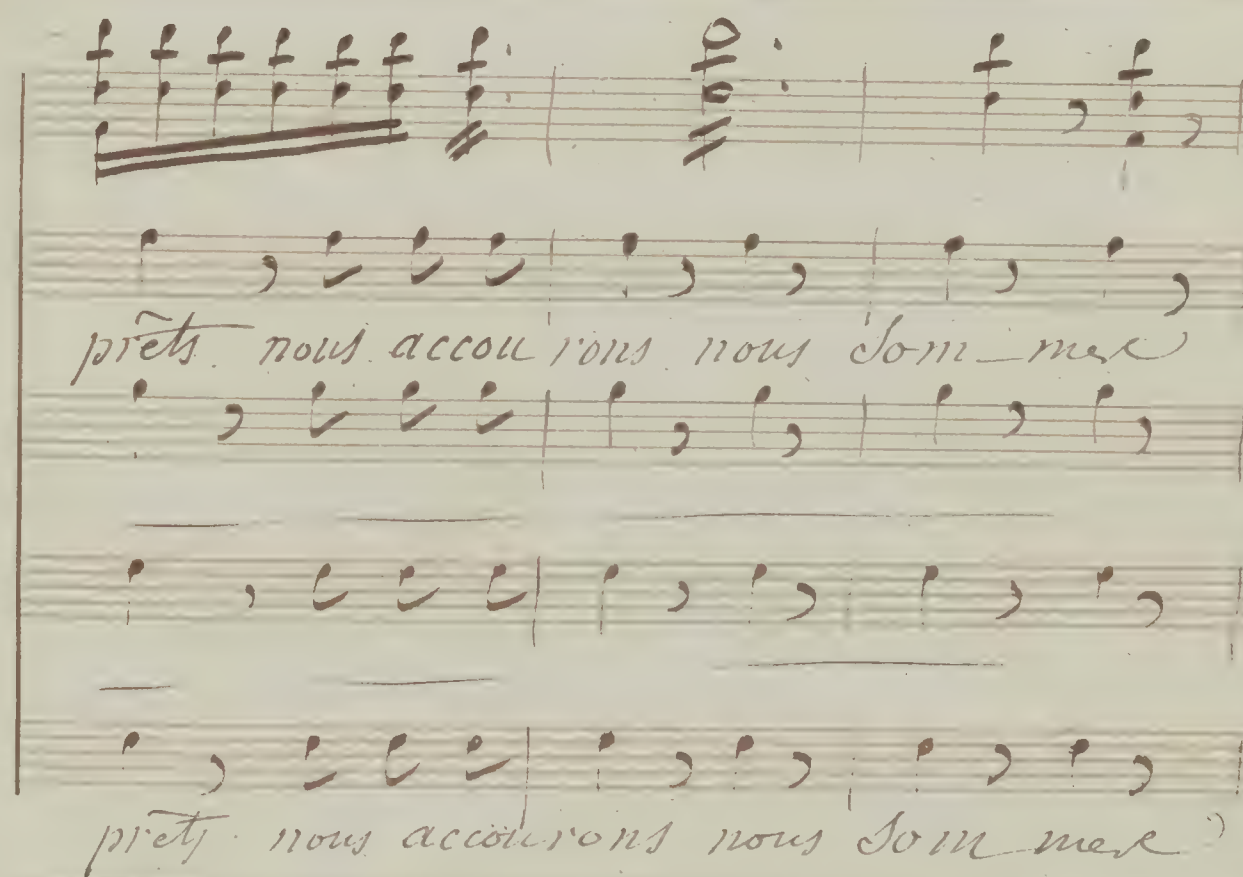 prêts nous accou rons nous Som_mes
prêts nous accourons nous Som mes